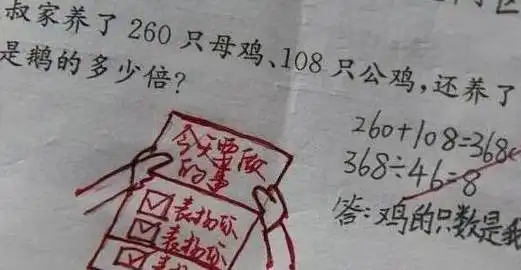 叔家养了 260 只母鸡、108 只公鸡,还养了
是鹅的多少倍?
260+108=368
368÷46=8
答:鸡的只数是我
今天要做
的事
表扬你
表扬你
表扬你